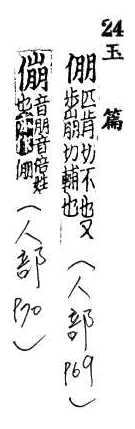 24
玉篇
倗
匹肯切不也又
步崩切輔也
(人部
P69)
傰
音朋音倍姓
也 倗
(人部
P70)